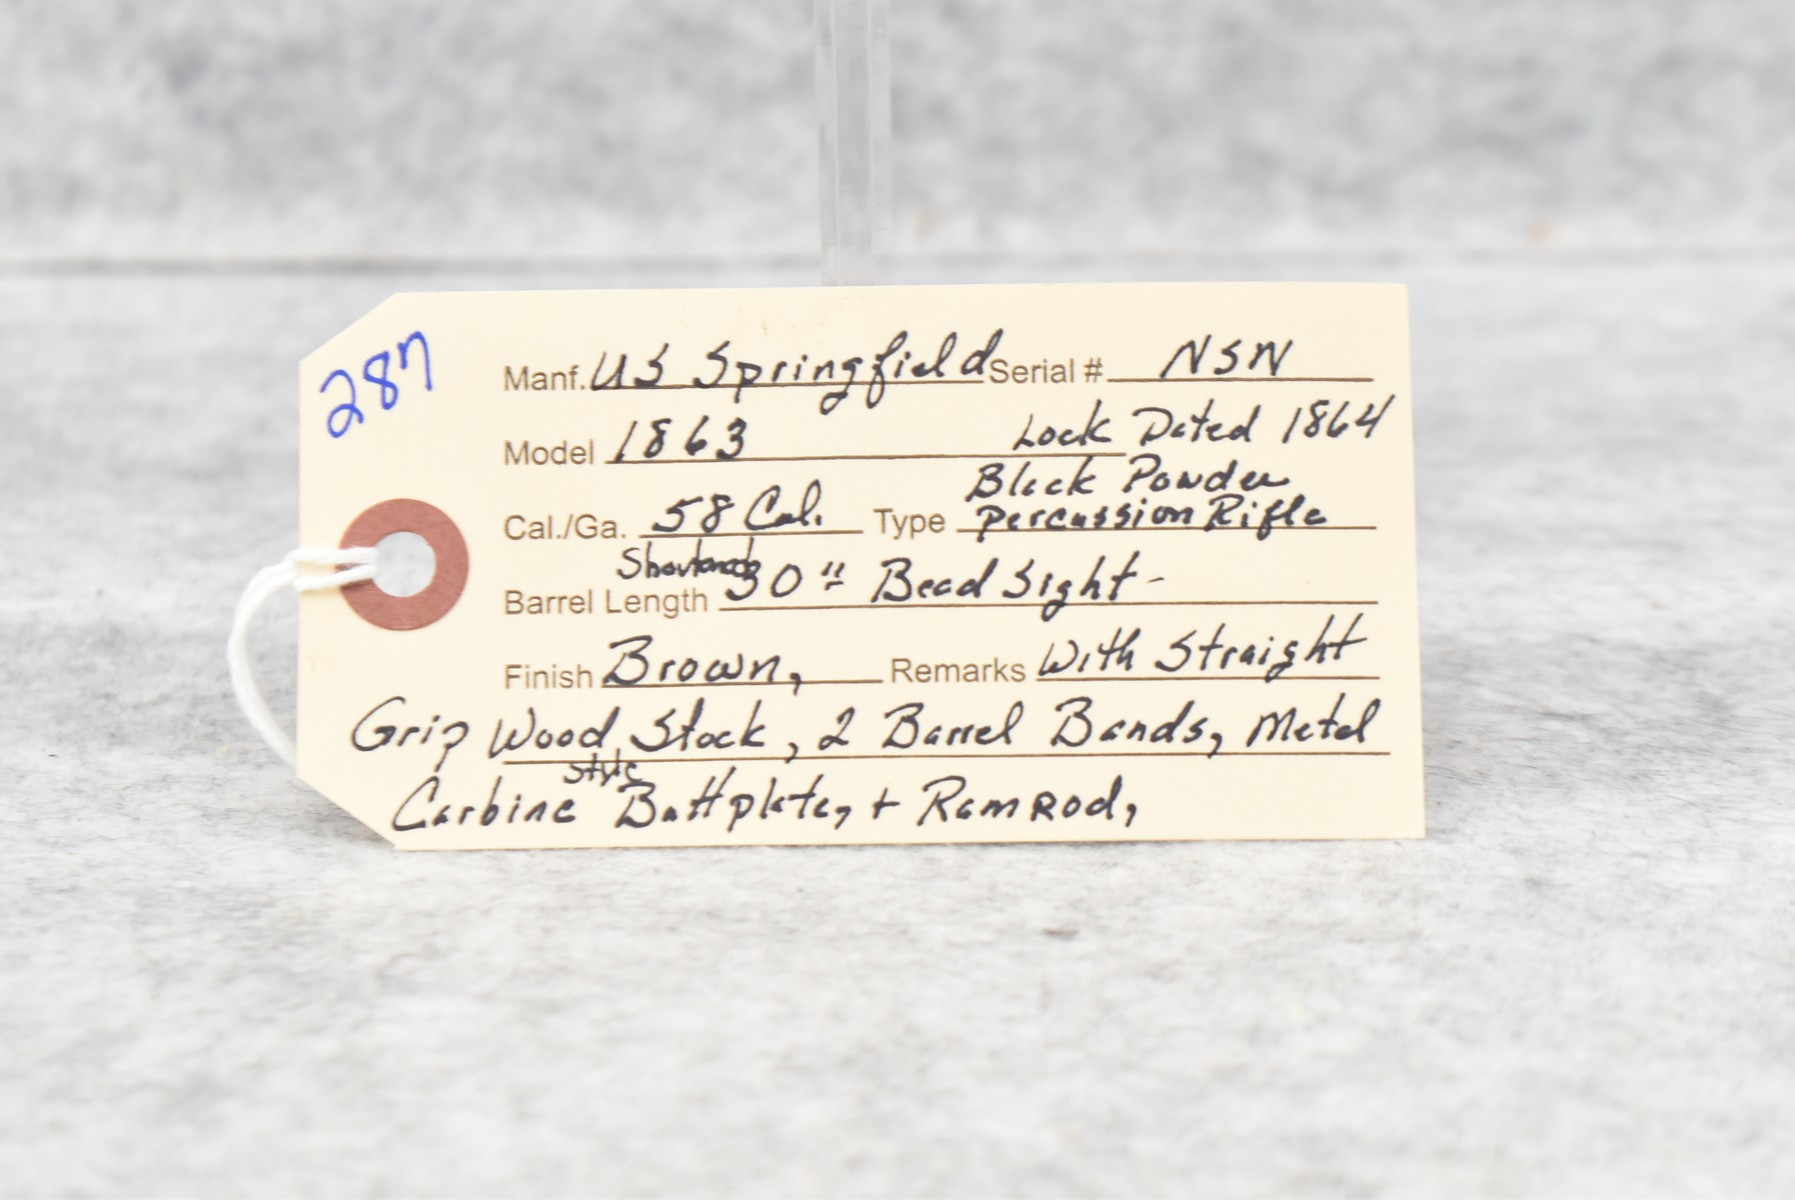 287
Manf. US Springfield Serial # NSN
Model 1863 Lock Dated 1864
Black Powder
Cal./Ga. 58 Cal. Type Percussion Rifle
Shortened
Barrel Length 30" Bead Sight -
Finish Brown, Remarks With Straight
Grip Wood Stock, 2 Barrel Bands, Metal
style
Carbine Buttplate, + RamRod,